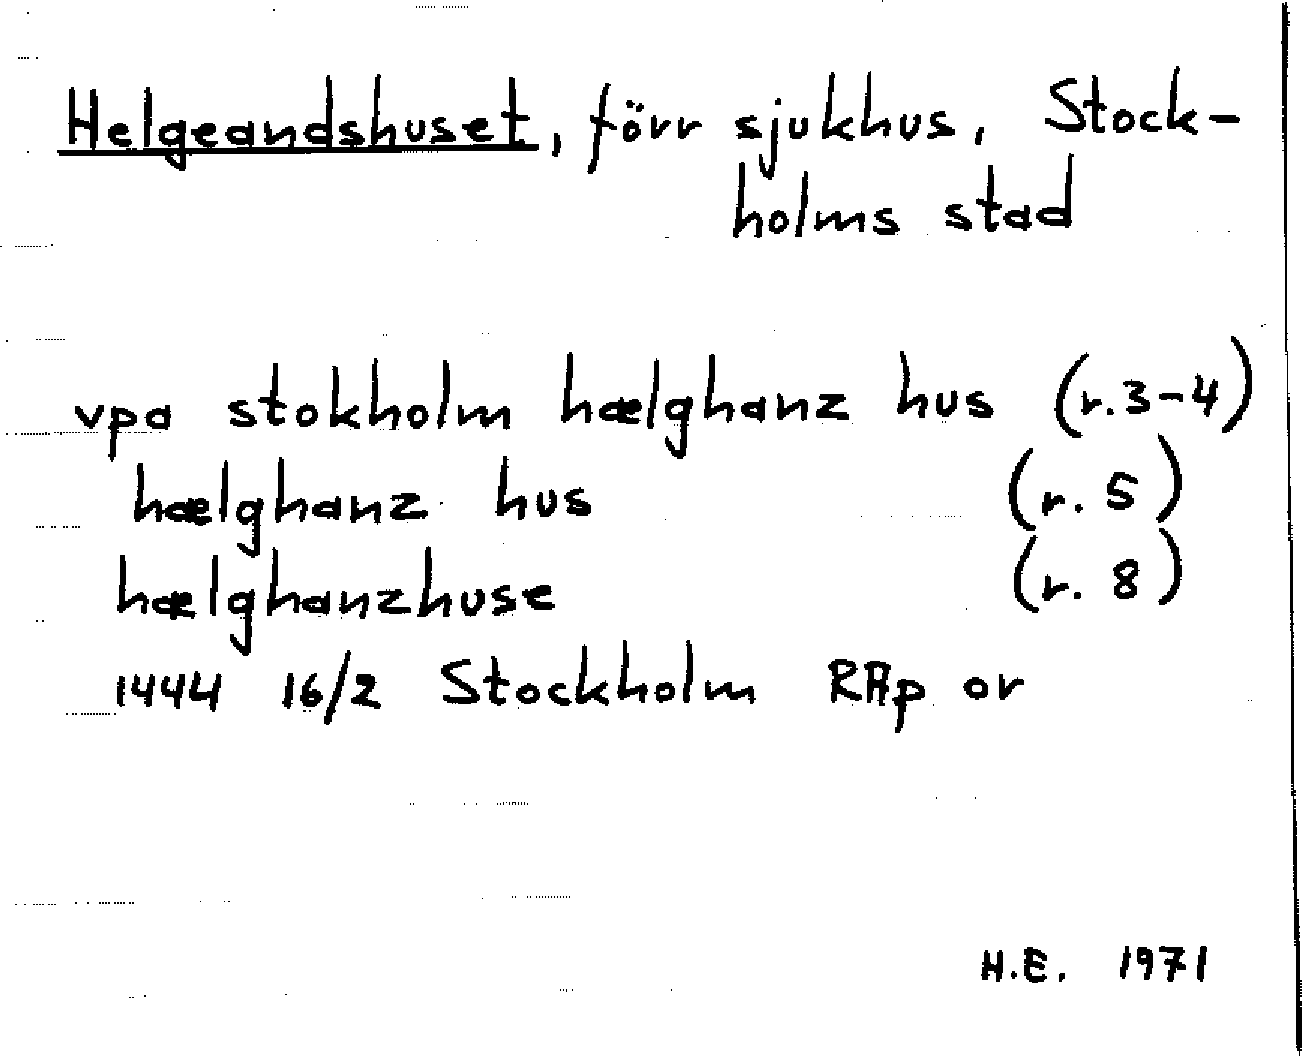 Helgeandshuset, förr sjukhus, Stock-
holms stad
vpa stokholm hælghanz hus (r.3-4)
hælghanz hus (r. 5)
hælghanzhuse (r. 8)
1444 16/2 Stockholm RAp or
H.E. 1971